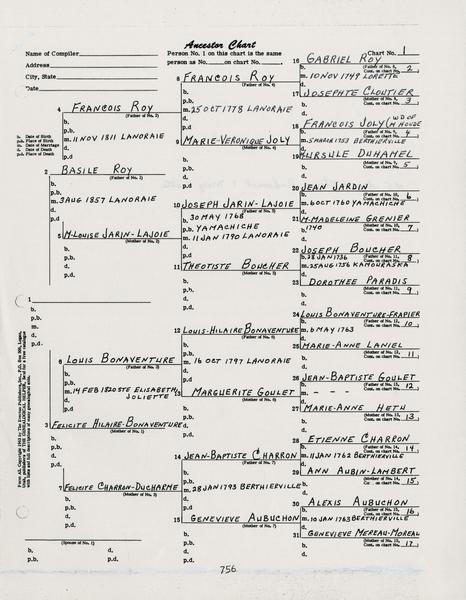 Ancestor Chart
Name of Compiler
Person No. 1 on this chart is the same
Chart No. 1
Address
person as No. on chart No. .
City, State
Date
16 GABRIEL ROY
(Father of No. 8,
Cont. on chart No. 2
b.
m. 10 NOV 1749 LORETTE
d.
8 FRANCOIS ROY
(Father of No. 4)
b.
p.b.
m. 25 OCT 1778 LANORAIE
d.
p.d.
17 JOSEPHTE CLOUTIER
(Mother of No. 8,
Cont. on chart No. 3
b.
d.
4 FRANCOIS ROY
(Father of No. 2)
b.
p.b.
m. 11 NOV 1811 LANORAIE
d.
p.d
18 FRANCOIS JOLY (WD OF M HOUSE
(Father of No. 9,
Cont. on chart No. 4
b.
m. 5 MAR 1753 BERTHIERVILLE
d.
9 MARIE-VERONIQUE JOLY
(Mother of No. 4)
b.
p.b.
d.
p.d.
19 URSULE DUHAMEL
(Mother of No. 9,
Cont. on chart No. 5
b.
d.
b. Date of Birth
p.b. Place of Birth
m. Date of Marriage
d. Date of Death
p.d. Place of Death
2 BASILE ROY
(Father of No. 1)
b.
p.b.
m. 3 AUG 1857 LANORAIE
d.
p.d.
20 JEAN JARDIN
(Father of No. 10,
Cont. on chart No. 6
b.
m. 6 OCT 1760 YAMACHICHE
d.
10 JOSEPH JARIN-LAJOIE
(Father of No. 5)
b. 30 MAY 1768
p.b. YAMACHICHE
m. 11 JAN 1790 LANORAIE
d.
p.d.
21 M-MADELEINE GRENIER
(Mother of No. 10,
Cont. on chart No. 7
b. 1740
d.
5 M-LOUISE JARIN-LAJOIE
(Mother of No. 2)
b.
p.b.
d.
p.d.
22 JOSEPH BOUCHER
(Father of No. 11,
Cont. on chart No. 8
b. 28 JAN 1736
m. 25 AUG 1756 KAMOURASKA
d.
11 THEOTISTE BOUCHER
(Mother of No. 5)
b.
p.b.
d.
p.d.
23 DOROTHEE PARADIS
(Mother of No. 11,
Cont. on chart No. 9
b.
d.
1
b.
p.b.
m.
d.
p.d.
24 LOUIS BONAVENTURE-FRAPIER
(Father of No. 12,
Cont. on chart No. 10
b.
m. 6 MAY 1763
d.
12 LOUIS-HILAIRE BONAVENTURE
(Father of No. 6)
b.
p.b.
m. 16 OCT 1797 LANORAIE
d.
p.d.
25 MARIE-ANNE LANIEL
(Mother of No. 12,
Cont. on chart No. 11
b.
d.
6 LOUIS BONAVENTURE
(Father of No. 3)
b.
p.b.
m. 14 FEB 1820 STE ELISABETH,
d. JOLIETTE
p.d.
26 JEAN-BAPTISTE GOULET
(Father of No. 13,
Cont. on chart No. 12
b.
m. - - -
d.
13 MARGUERITE GOULET
(Mother of No. 6)
b.
p.b.
d.
p.d.
27 MARIE-ANNE HETU
(Mother of No. 13,
Cont. on chart No. 13
b.
d.
3 FELICITE HILAIRE-BONAVENTURE
(Mother of No. 1)
b.
p.b.
d.
p.d.
28 ETIENNE CHARRON
(Father of No. 14,
Cont. on chart No. 14
b.
m. 11 JAN 1762 BERTHIERVILLE
d.
14 JEAN-BAPTISTE CHARRON
(Father of No. 7)
b.
p.b.
m. 28 JAN 1793 BERTHIERVILLE
d.
p.d.
29 ANN AUBIN-LAMBERT
(Mother of No. 14,
Cont. on chart No. 15
b.
d.
7 FELICITE CHARRON-DUCHARME
(Mother of No. 3)
b.
p.b.
d.
p.d.
30 ALEXIS AUBUCHON
(Father of No. 15,
Cont. on chart No. 16
b.
m. 10 JAN 1763 BERTHIERVILLE
d.
15 GENEVIEVE AUBUCHON
(Mother of No. 7)
b.
p.b.
d.
p.d.
31 GENEVIEVE MEREAU-MOREAU
(Mother of No. 15,
Cont. on chart No. 17
b.
d.
(Spouse of No. 1)
b. d.
p.b. p.d.
756